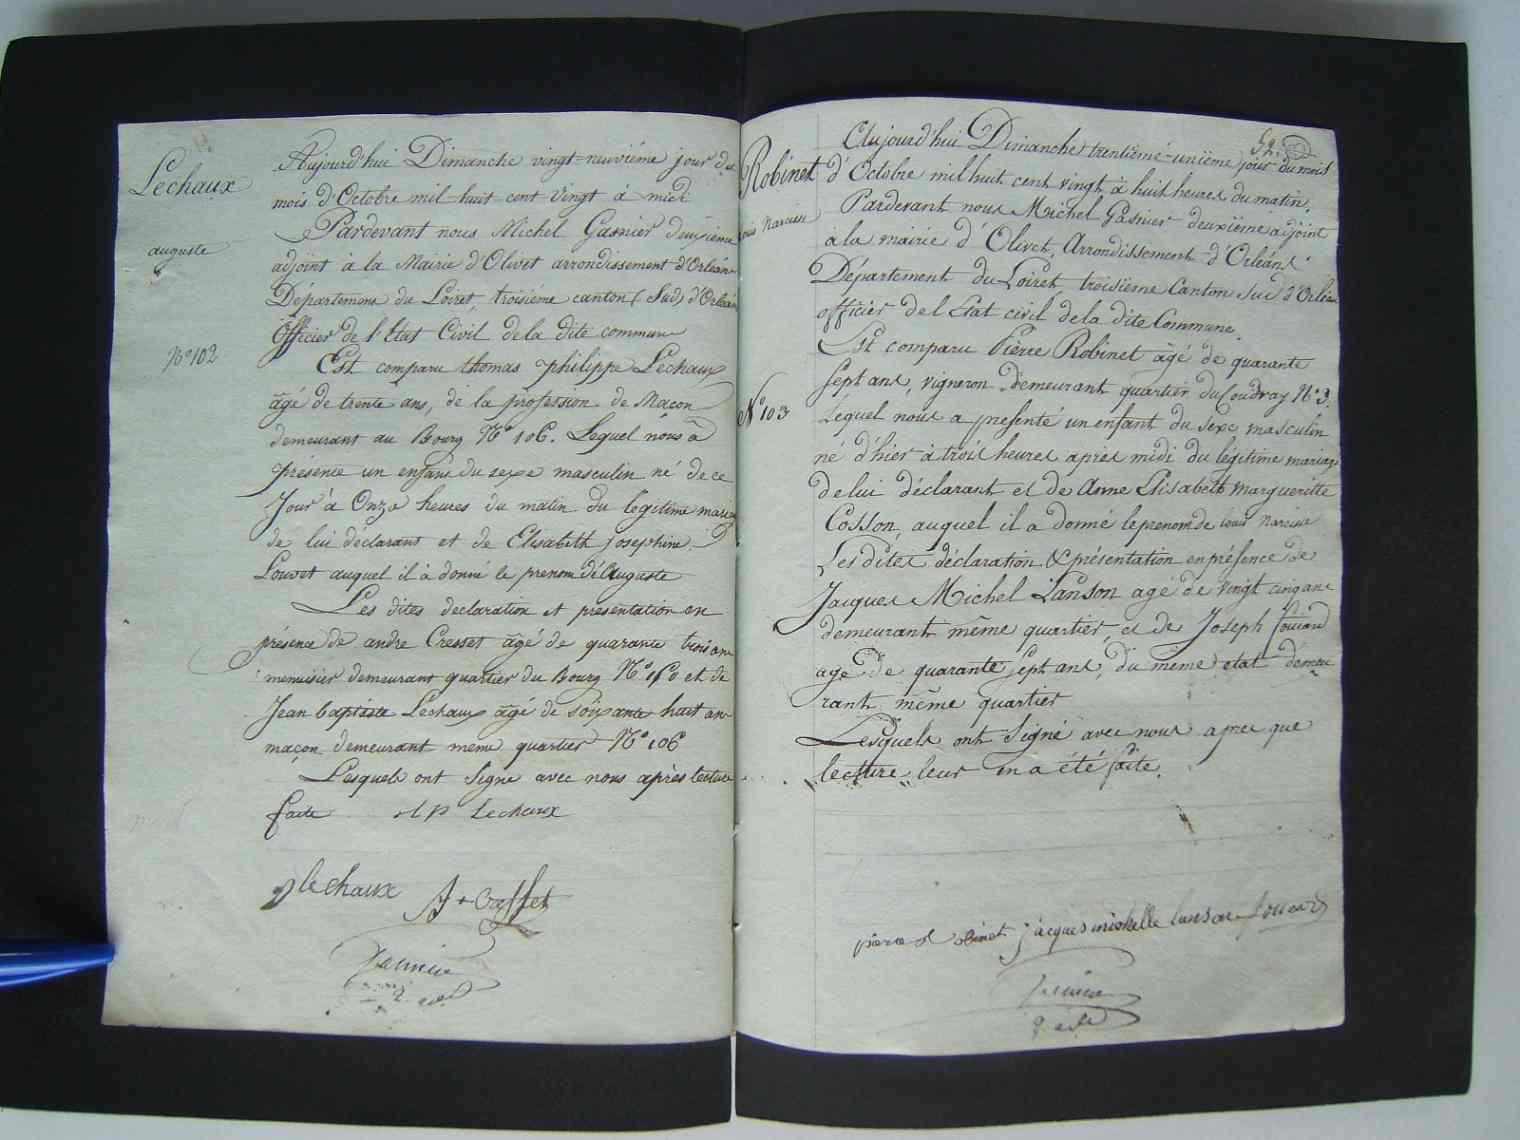 Lechaux
auguste
N° 102
Aujourd'hui Dimanche vingt-neuvième jour du
mois d'Octobre mil huit cent vingt à midi
Pardevant nous Michel Gasnier deuxième
adjoint à la Mairie d'Olivet arrondissement d'Orléans
Département du Loiret, troisième canton (Sud) d'Orléans
Officier de l'Etat Civil de la dite commune
Est comparu thomas philippe Lechaux
âgé de trente ans, de la profession de Maçon
demeurant au Bourg N° 106. Lequel nous à
présenté un enfant du sexe masculin né de ce
Jour à Onze heures du matin du légitime mariage
de lui déclarant et de Elisabeth josephine
Louvet auquel il à donné le prenom d'Auguste
Les dites declaration et presentation en
présence de andre Cresset âgé de quarante trois ans
menuisier demeurant quartier du Bourg N° et de
Jean baptiste Lechaux âgé de soixante huit ans
maçon demeurant meme quartier N° 106
Lesquels ont Signé avec nous après lecture
faite Lechaux
Lechaux
2.
52.
Robinet
Louis Narcisse
N° 103
Aujourd'hui Dimanche trentième-unième jour du mois
d'Octobre mil huit cent vingt à huit heures du matin.
Pardevant nous Michel Gasnier deuxième adjoint
à la mairie d'Olivet, Arrondissement d'Orléans
Département du Loiret, troisième Canton Sud d'Orléans
officier de l'Etat civil de la dite Commune.
Est comparu Pierre Robinet âgé de quarante
Sept ans, vigneron demeurant quartier du Coudray N° 3.
Lequel nous a présenté un enfant du Sexe masculin
né d'hier à trois heures après midi du légitime mariage
de lui déclarant et de Anne Elisabeth margueritte
Cosson, auquel il a donné le prenom de Louis Narcisse
Les dites déclaration & présentation en présence de
Jacques Michel Lanson agé de vingt cinq ans
demeurant même quartier, et de Joseph
agé de quarante Sept ans, du même etat démeu
rant même quartier
Lesquels ont Signé avec nous apres que
lecture leur en a été faite.
piere Robinet jacques michelle lanson